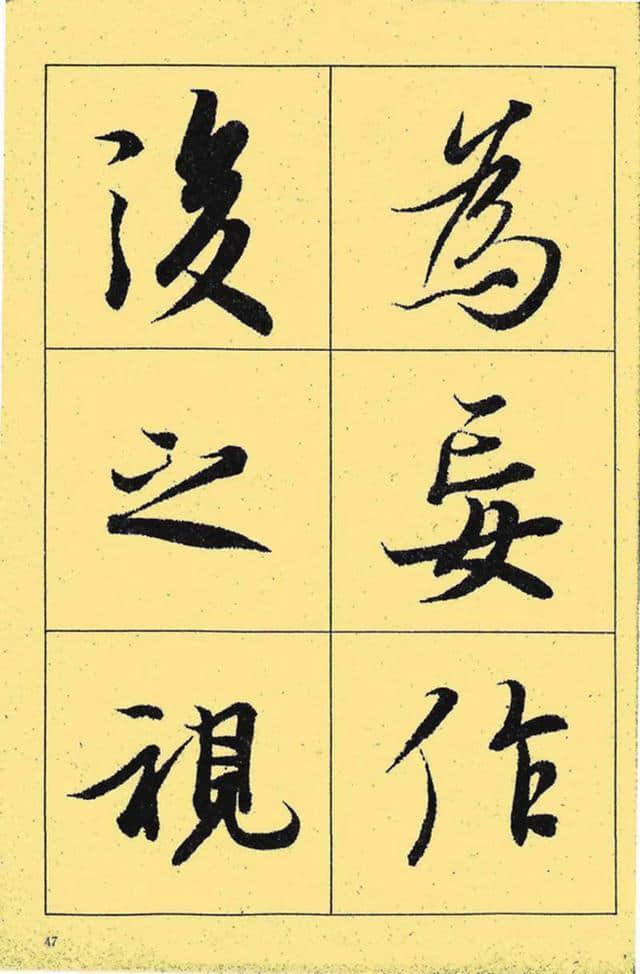 為妄作
後之視
47